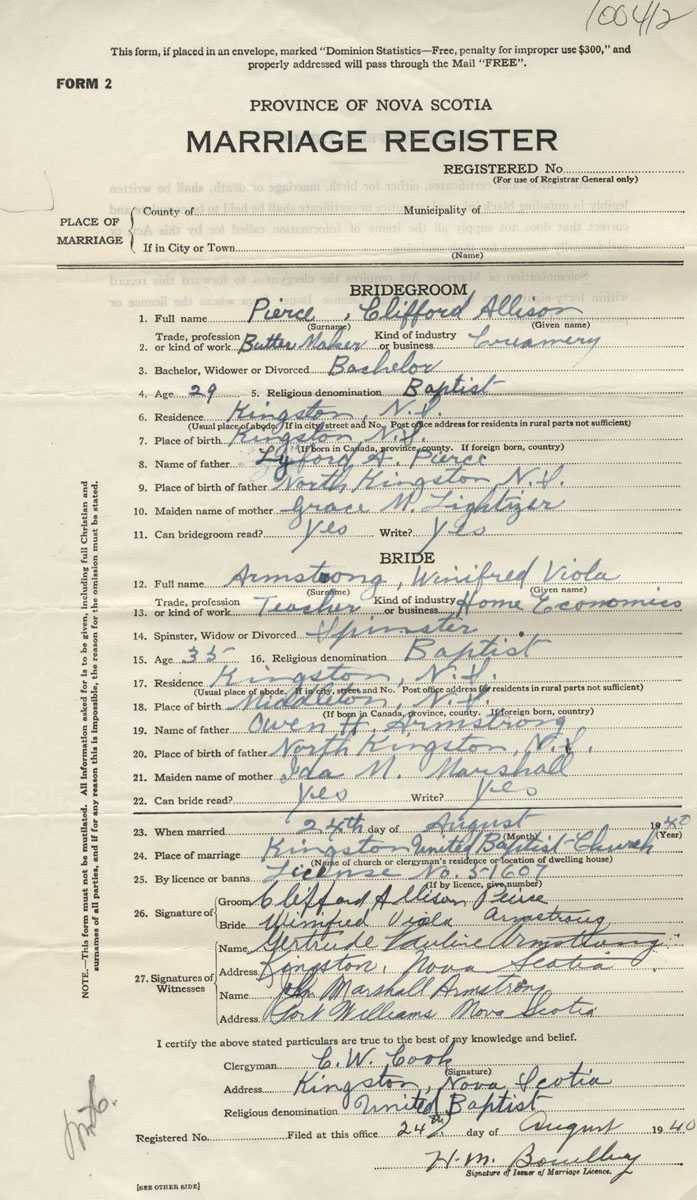 100412
This form, if placed in an envelope, marked "Dominion Statistics—Free, penalty for improper use $300," and
properly addressed will pass through the Mail "FREE".
FORM 2
PROVINCE OF NOVA SCOTIA
MARRIAGE REGISTER
REGISTERED No.
(For use of Registrar General only)
PLACE OF MARRIAGE
County of Municipality of
If in City or Town
(Name)
BRIDEGROOM
1. Full name Pierce, Clifford Allison
(Surname) (Given name)
2. Trade, profession or kind of work Butter Maker Kind of industry or business Creamery
3. Bachelor, Widower or Divorced Bachelor
4. Age 29 5. Religious denomination Baptist
6. Residence Kingston, N.S.
(Usual place of abode. If in city, street and No. Post office address for residents in rural parts not sufficient)
7. Place of birth Kingston N.S.
(If born in Canada, province, county. If foreign born, country)
8. Name of father Lyford A. Pierce
9. Place of birth of father North Kingston, N.S.
10. Maiden name of mother Grace M. Lightizer
11. Can bridegroom read? Yes Write? Yes
BRIDE
12. Full name Armstrong, Winifred Viola
(Surname) (Given name)
13. Trade, profession or kind of work Teacher Kind of industry or business Home Economics
14. Spinster, Widow or Divorced Spinster
15. Age 35 16. Religious denomination Baptist
17. Residence Kingston, N.S.
(Usual place of abode. If in city, street and No. Post office address for residents in rural parts not sufficient)
18. Place of birth Middleton, N.S.
(If born in Canada, province, county. If foreign born, country)
19. Name of father Owen H. Armstrong
20. Place of birth of father North Kingston, N.S.
21. Maiden name of mother Ida M. Marshall
22. Can bride read? Yes Write? Yes
23. When married 24th day of August 1940
(Month) (Year)
24. Place of marriage Kingston United Baptist Church
(Name of church or clergyman's residence or location of dwelling house)
25. By licence or banns License No. 51607
(If by licence, give number)
26. Signature of
Groom Clifford Allison Pierce
Bride Winifred Viola Armstrong
27. Signatures of Witnesses
Name Gertrude Pauline Armstrong
Address Kingston, Nova Scotia
Name John Marshall Armstrong
Address Port Williams Nova Scotia
I certify the above stated particulars are true to the best of my knowledge and belief.
Clergyman C. W. Cook
(Signature)
Address Kingston, Nova Scotia
Religious denomination United Baptist
Registered No. Filed at this office 24th day of August 1940
H. M.
Signature of Issuer of Marriage Licence.
[SEE OTHER SIDE]
NOTE.—This form must not be mutilated. All information asked for is to be given, including full Christian and
surnames of all parties, and if for any reason this is impossible, the reason for the omission must be stated.